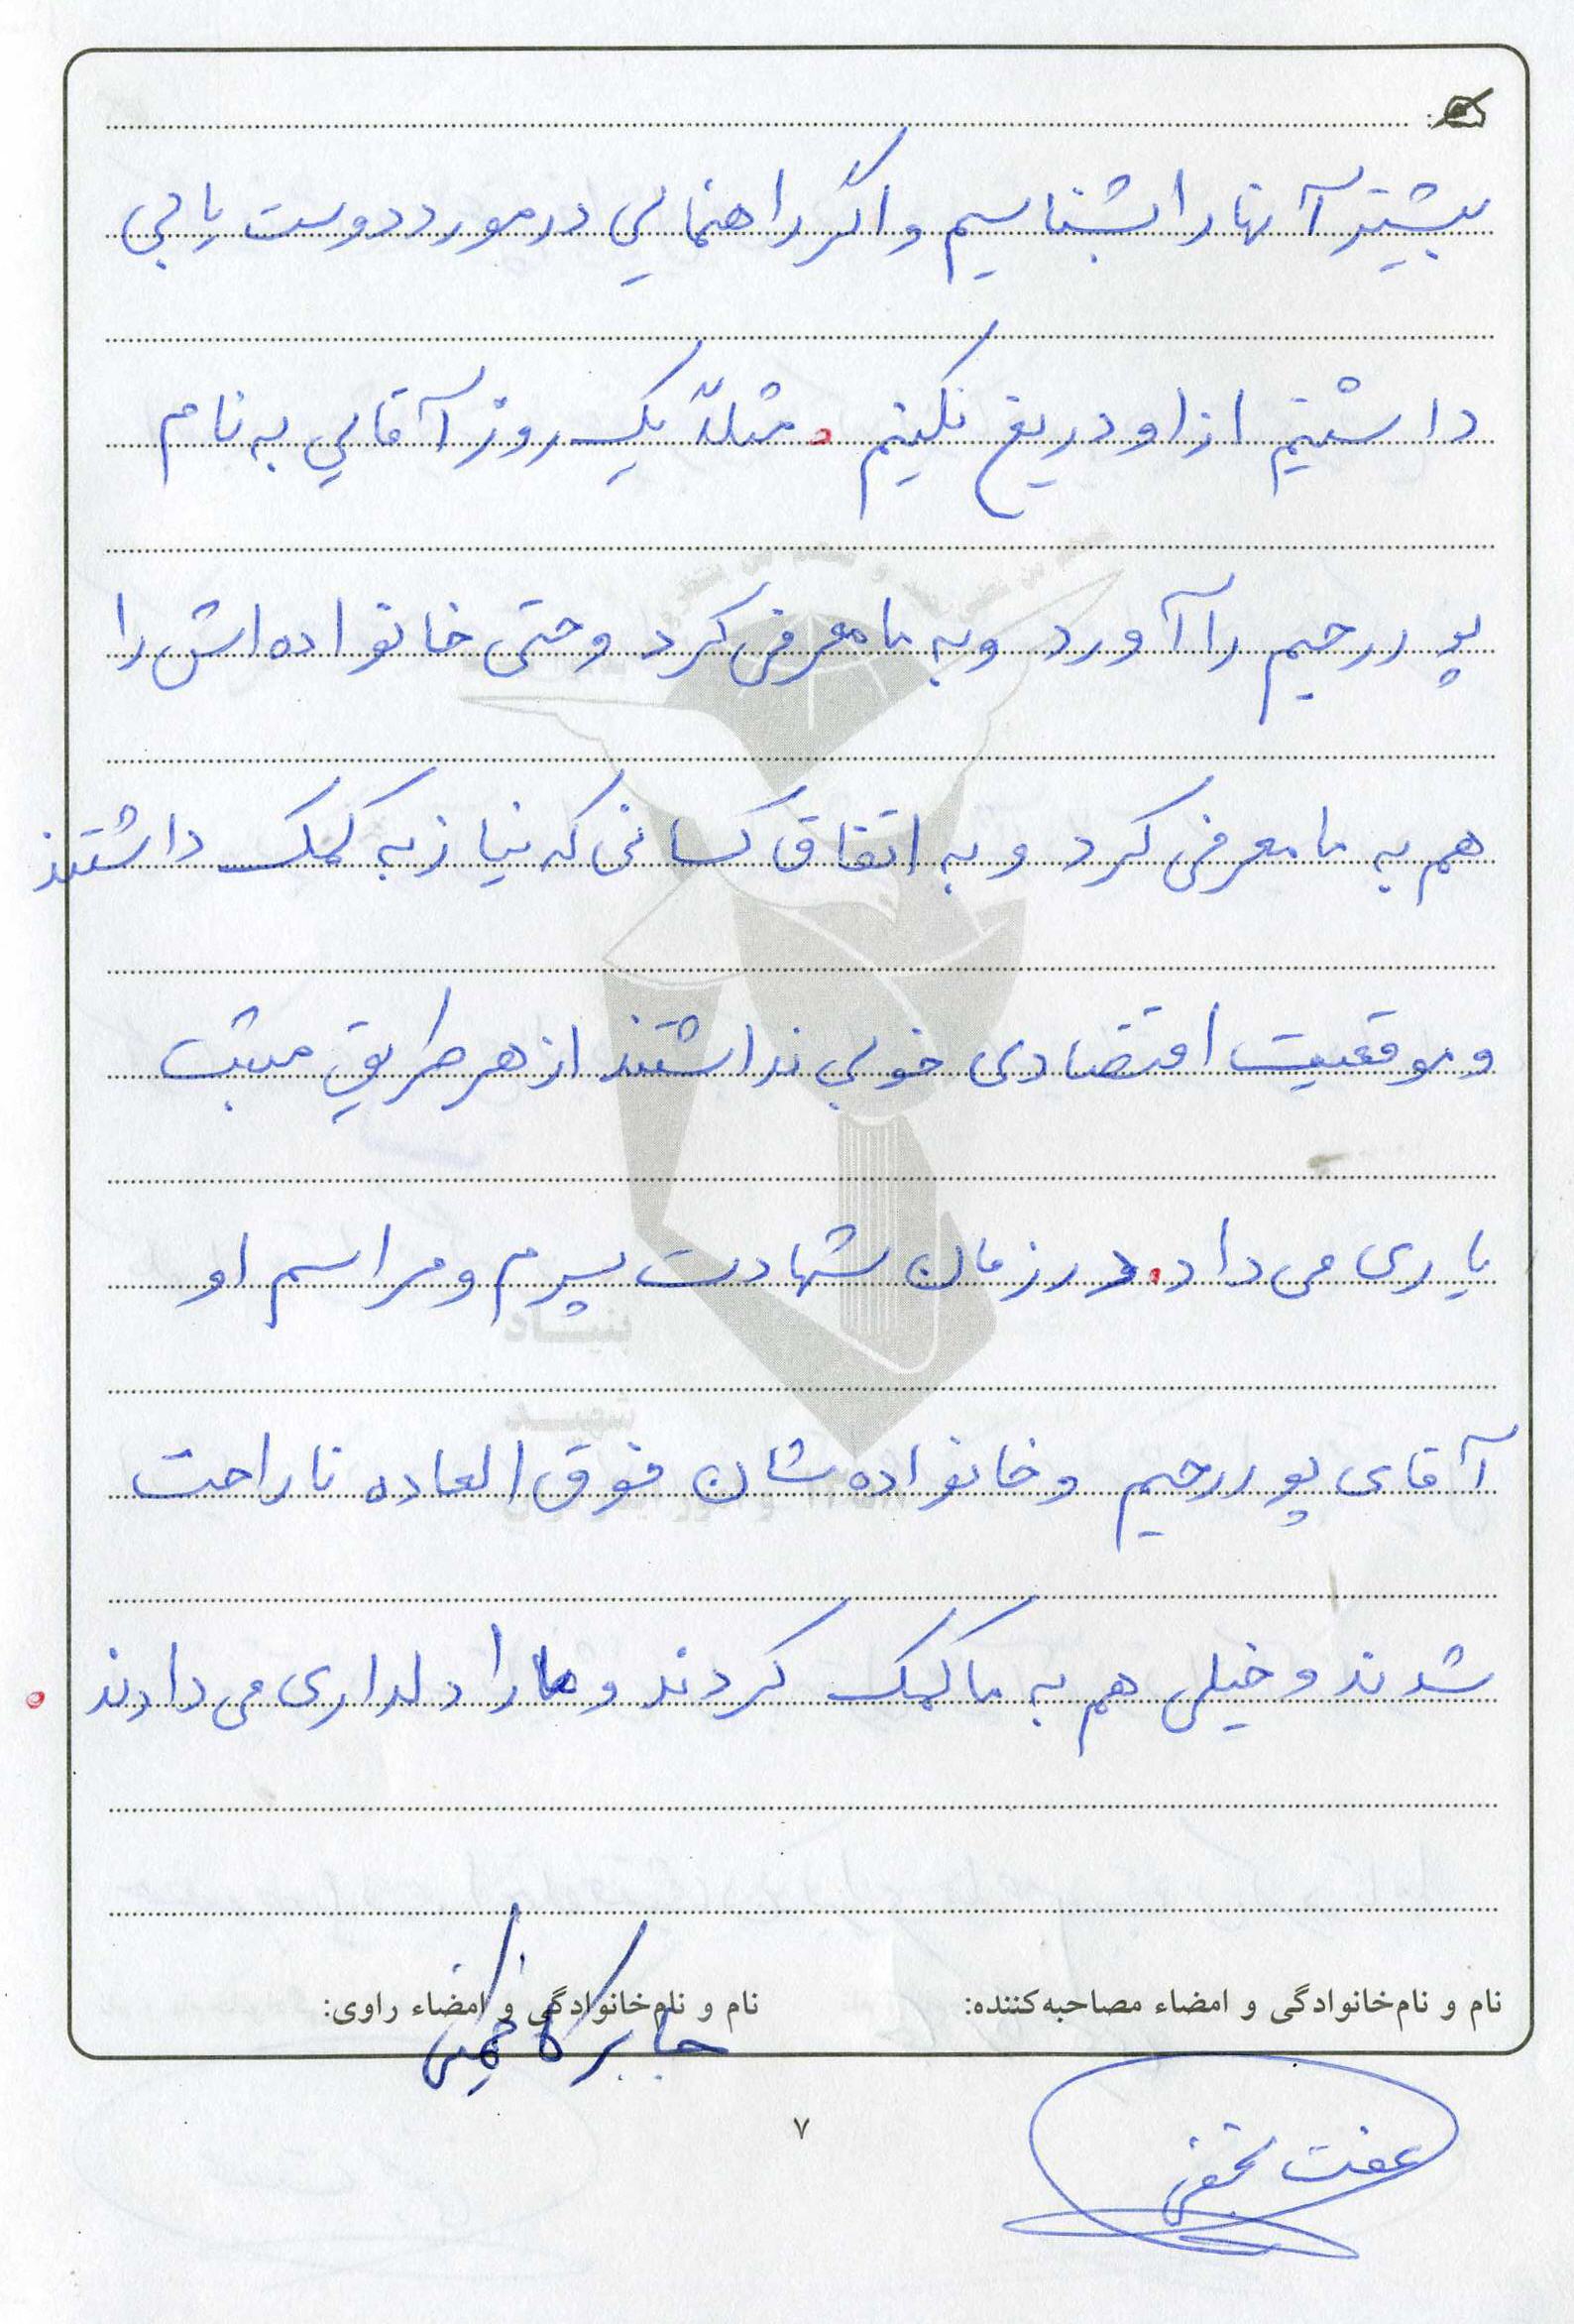 بیشتر آنها را بشناسیم و اگر راهنمایی در مورد دوست یابی
داشتیم از او دریغ نکنیم . مثلاً یک روز آقایی به نام
پوررحیم را آورد و به ما معرفی کرد و حتی خانواده اش را
هم به ما معرفی کرد و به اتفاق کسانی که نیاز به کمک داشتند
و موقعیت اقتصادی خوبی نداشتند از هر طریق مثبت
یاری می داد . در زمان شهادت پسرم و مراسم او
آقای پوررحیم و خانواده شان فوق العاده ناراحت
شدند و خیلی هم به ما کمک کردند و ما را دلداری می دادند .
نام و نام‌خانوادگی و امضاء مصاحبه‌کننده: نام و نام‌خانوادگی و امضاء راوی:
جابر کاظمینی
۷
عفت
بنیاد
شهید